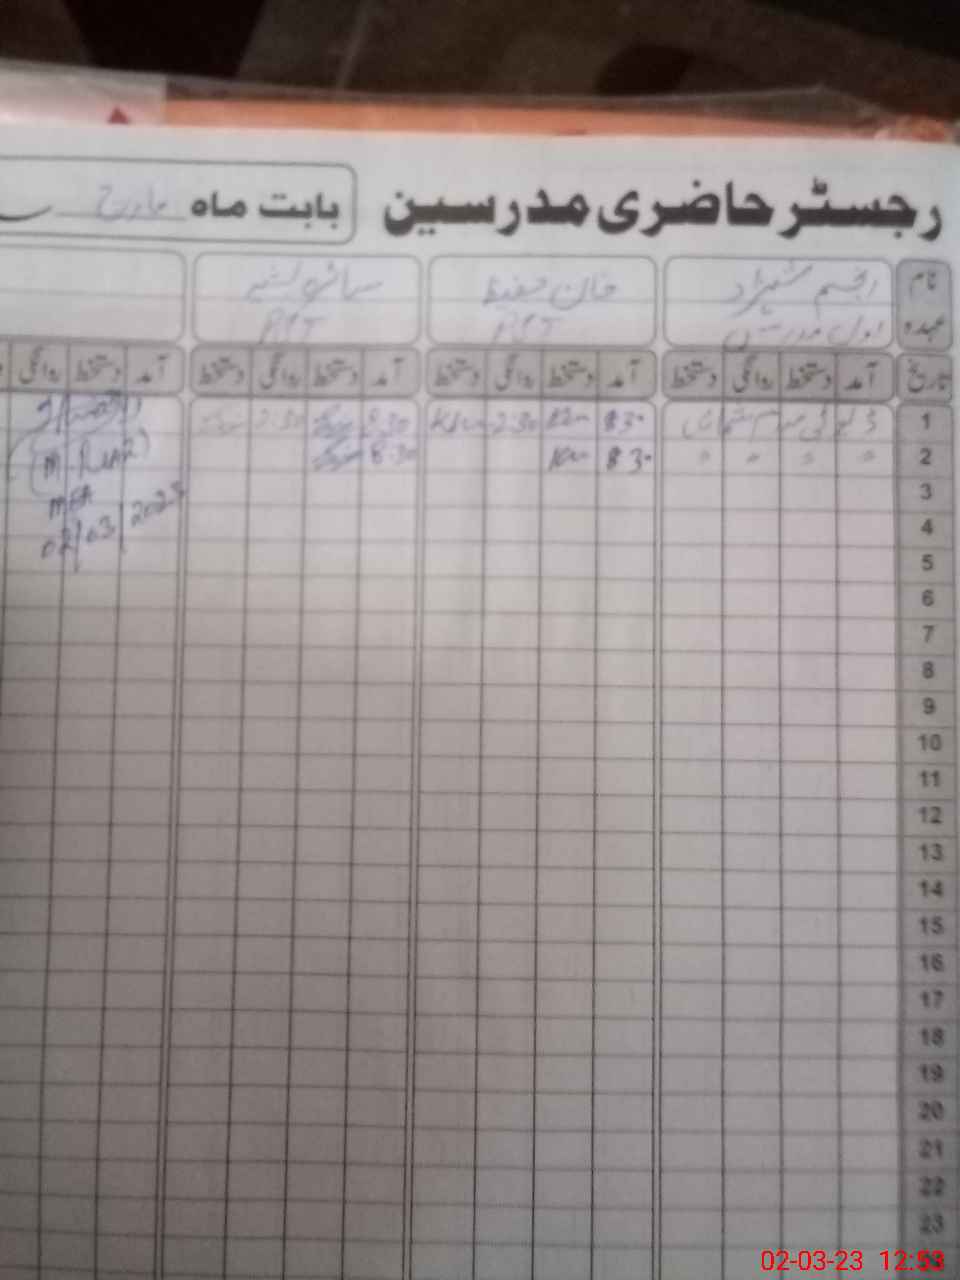 رجسٹر حاضری مدرسین بابت ماہ مارچ
نام انجم شہزاد خان حفیظ
عہدہ اول مدرس PST PST
تاریخ آمد دستخط روانگی دستخط آمد دستخط روانگی دستخط آمد دستخط روانگی دستخط آمد دستخط روانگی
1 8:30 2:30 8:30 2:30
2 " " " " 8:30 8:30
(M-Riaz)
MEA
3
02/03/2023
4
5
6
7
8
9
10
11
12
13
14
15
16
17
18
19
20
21
22
23
02-03-23 12:53